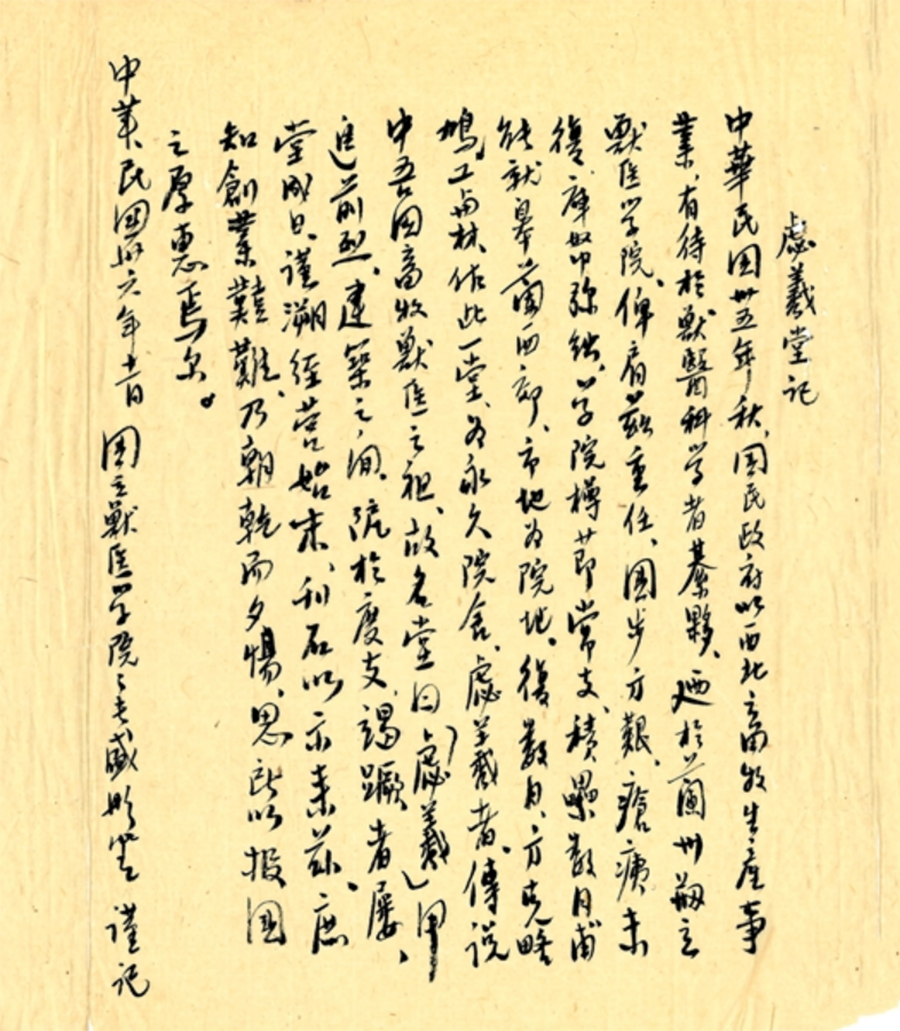 虙羲堂记
中華民国卅五年秋、国民政府以西北之畜牧生産事
業、有待於獸醫科学者綦夥、廼於蘭州剏立
獸医学院、俾肩茲重任、国步方艱、瘡痍未
復、庫帑弥絀、学院樽节常支、積纍数月甫
能就皋蘭西郊、市地为院地。復数月、方克略
鳩工与材、佔此一堂、为永久院舍、虙羲者、傳说
中吾国畜牧獸医之祖、故名堂曰「虙羲」用
进前烈、建築之间、阨於度支、竭蹶者屡、
堂成日、謹溯経营始末、刊石以示来茲、庶
知創業艱難、乃朝乾而夕惕、思所以报国
之厚惠焉尔。
中華民国卅六年十一月 国立獸医学院院长盛彤笙 谨记